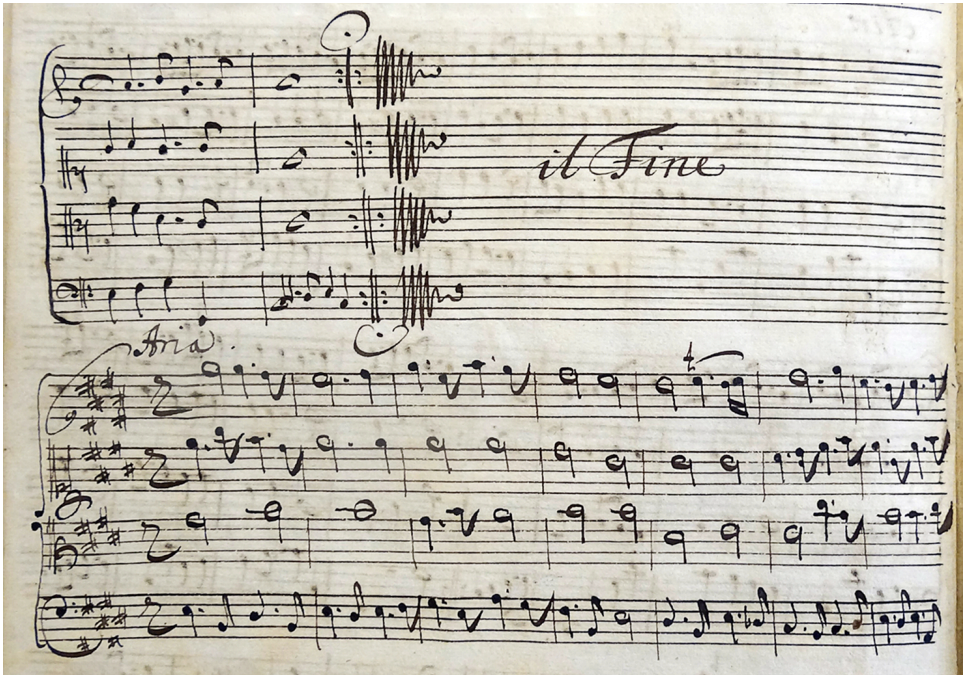 il Fine
Aria.
t